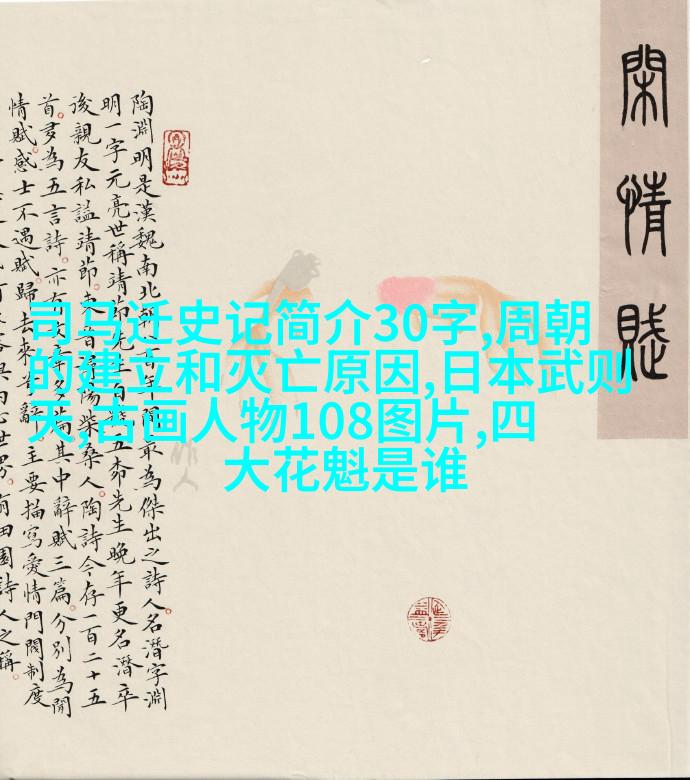 閑情賦
陶淵明是漢魏南北朝
明一字元亮世稱靖節先生
後親友私謚靖節
首多為五言詩
情賦感士不遇賦歸去來
年間最為傑出之詩人名潛字淵
五柳先生晚年更名潛卒
陽柴桑人陶詩今存一百二十五
其中辭賦三篇分別為閒
主要描寫愛情門閥制度
田園詩人之稱
司马迁史记简介30字,周朝
的建立和灭亡原因,日本武则
天,古画人物108图片,四
大花魁是谁